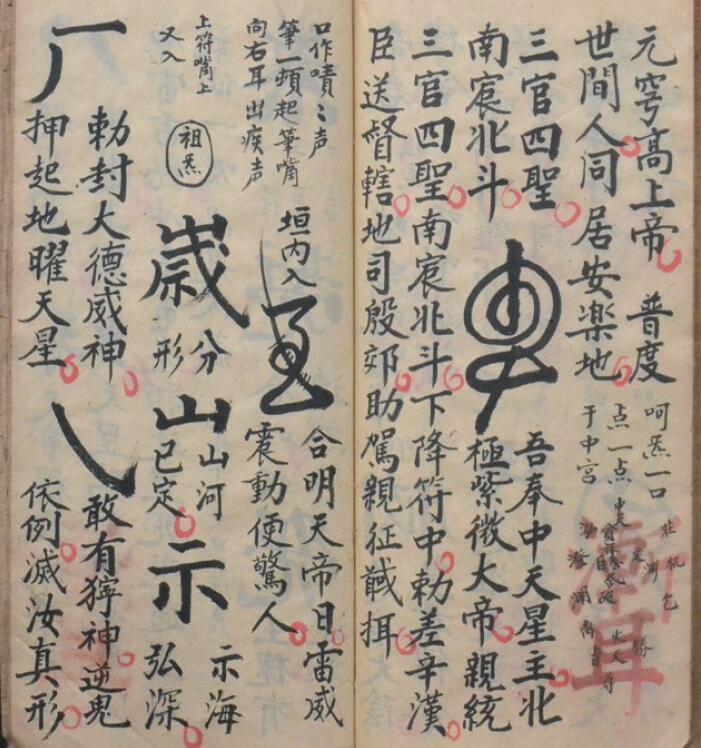 元穹高上帝 普度
世間人同居安楽地
呵炁一口
点一点
于中宮
漸耳
三官四聖
南宸北斗
吾奉中天星主北
極紫微大帝親統
三官四聖南宸北斗下降符中勅差辛漢
臣送督轄地司殷郊助駕親征馘挕
口作嘖〻声
筆一頓起筆嘴
向右耳出疾声
垣内入
合明天帝日雷威
震動便驚人
上符嘴上
又入
祖炁
歳
分
形
山
山河
已定
示
示海
弘深
勅封大德威神
押起地曜天星
敢有獰神逆鬼
依例滅汝真形